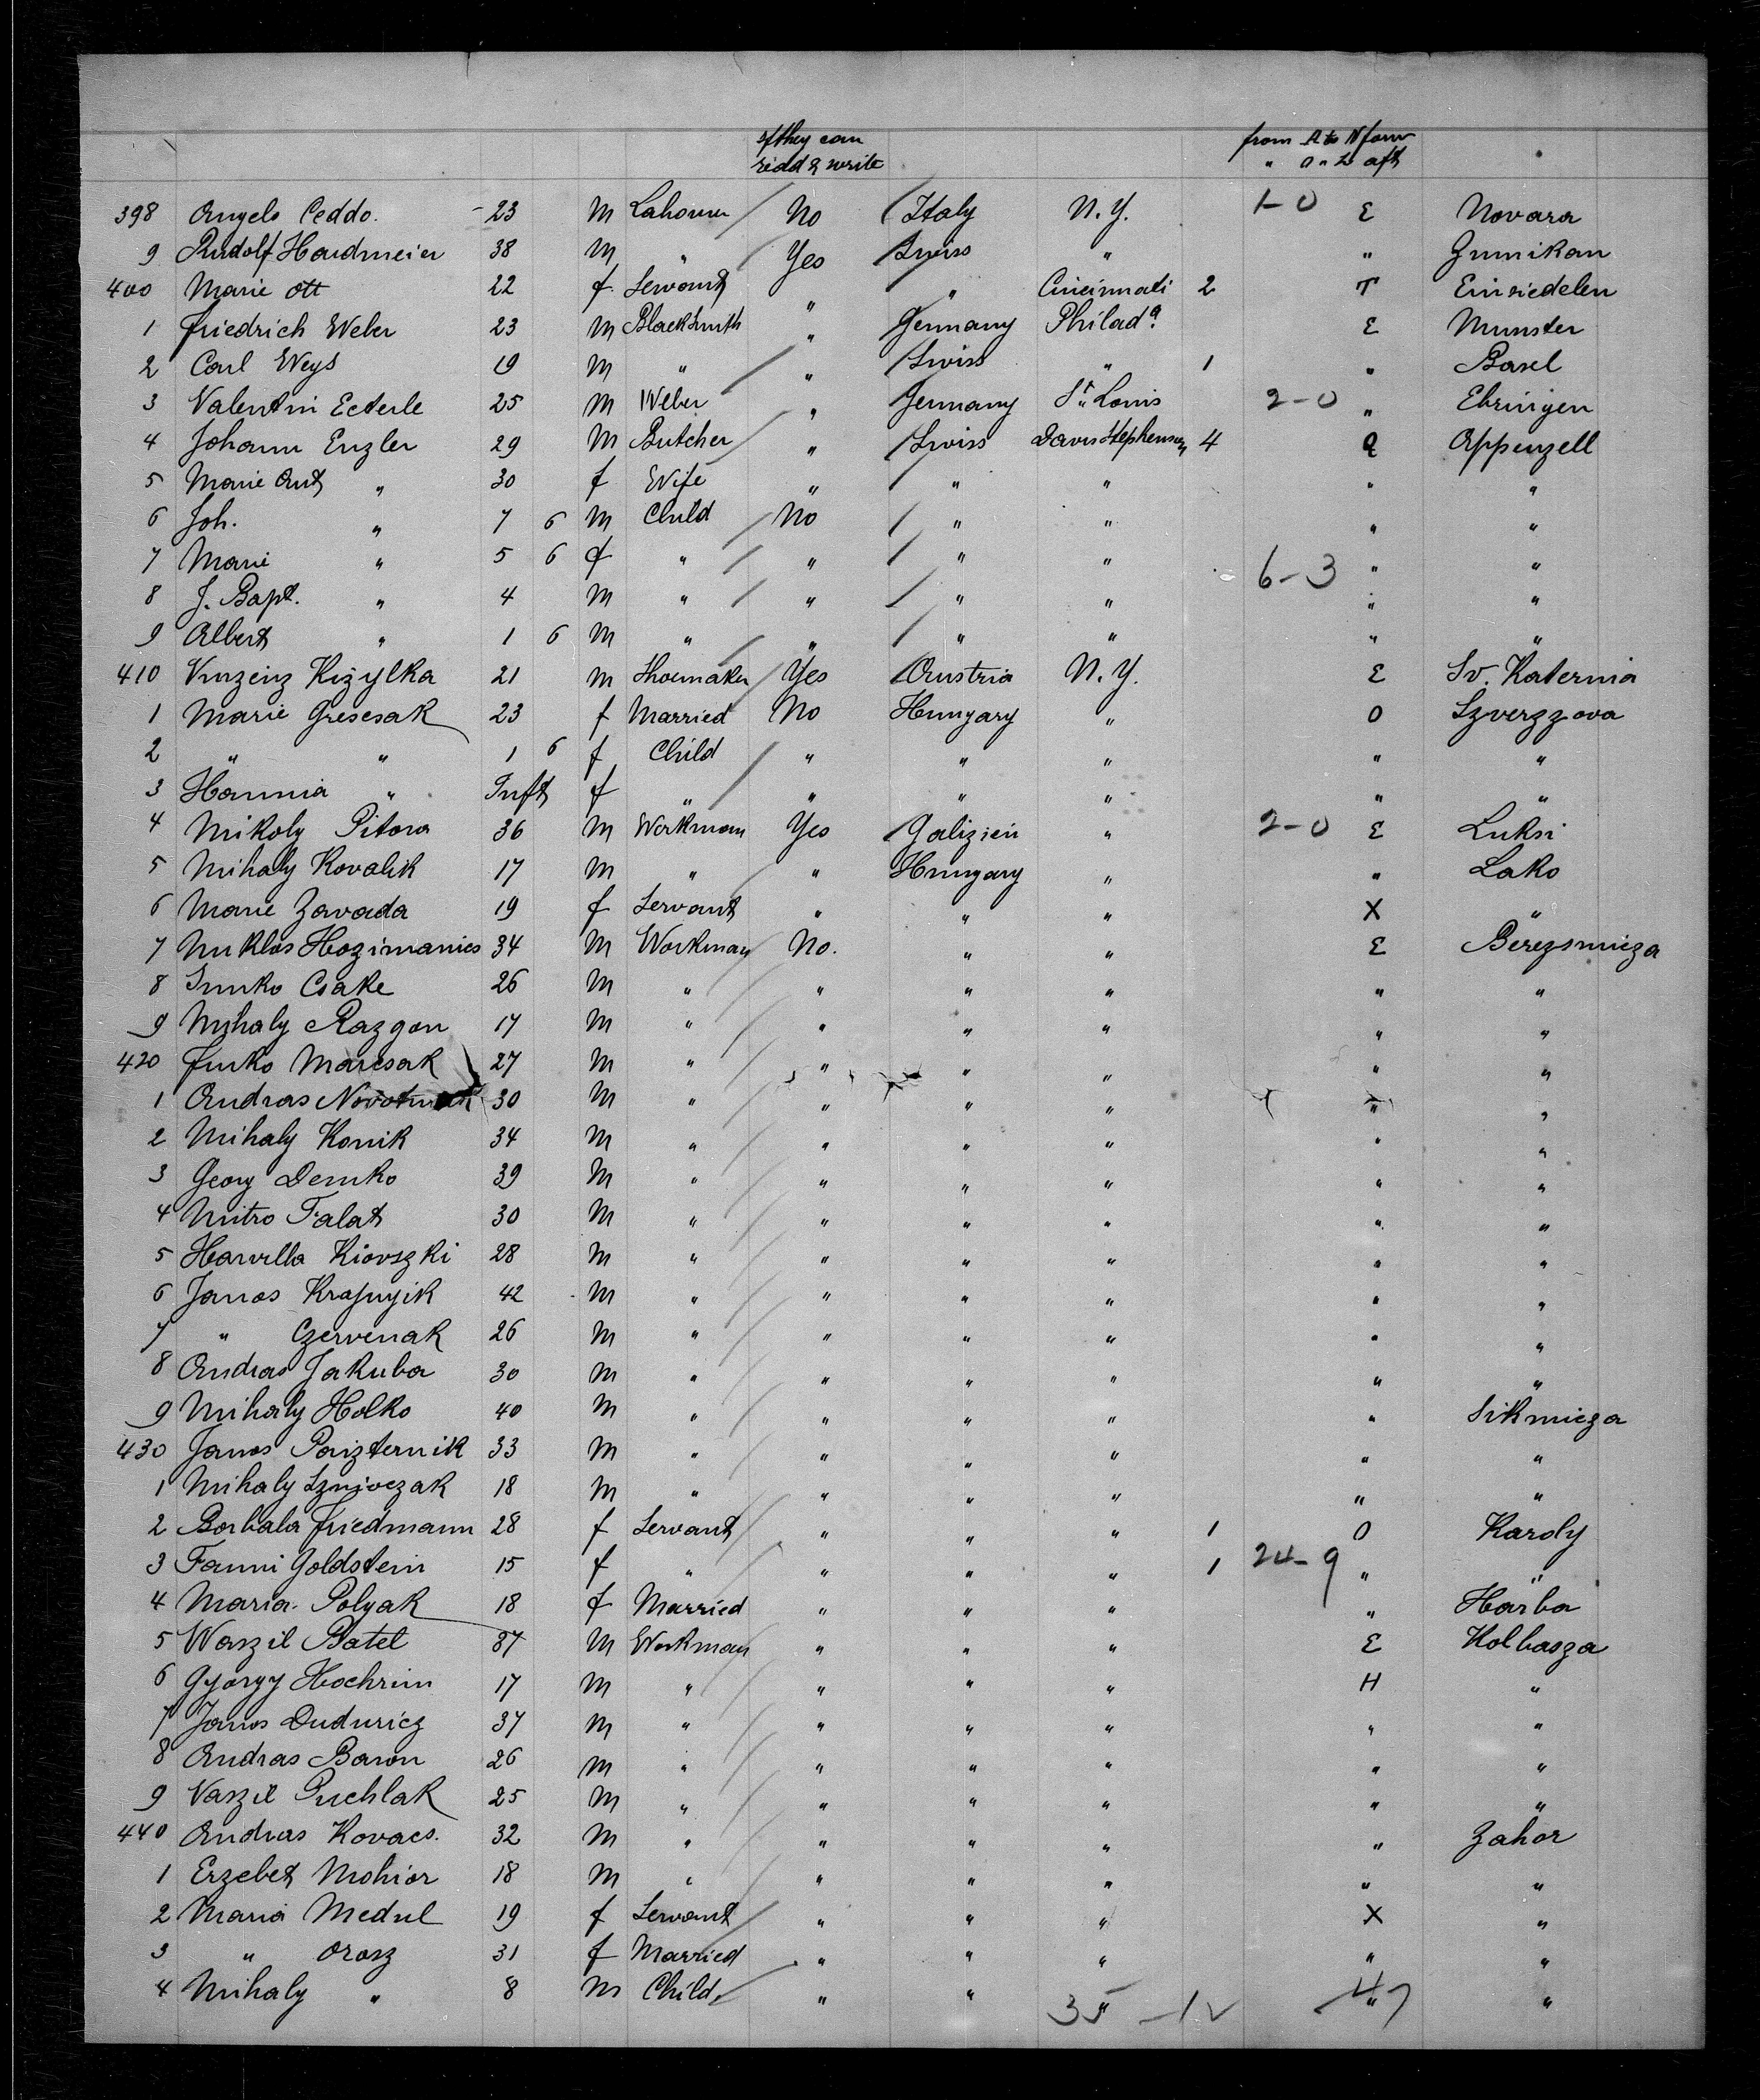 If they can from A to N forw
read & write " O " Z aft
398 Angelo Ceddo. 23 M Labourer No Italy N.Y. 1-0 E Novara
9 Rudolf Hardmeier 38 M " Yes Swiss " " Zumikon
400 Marie Ott 22 f. Servant " " Cincinnati 2 T Einsiedelen
1 Friedrich Weber 23 M Blacksmith " Germany Philada. E Munster
2 Carl Weys 19 M " " Swiss " 1 " Basel
3 Valentin Ecterle 25 M Weber " Germany St. Louis 2-0 " Ebringen
4 Johann Enzler 29 M Butcher " Swiss Davis Stephenson 4 Q Appenzell
5 Marie Ant " 30 f Wife " " " " "
6 Joh. " 7 6 M Child No " " " "
7 Marie " 5 6 f " " " " 6-3 " "
8 J. Bapt. " 4 M " " " " " "
9 Albert " 1 6 M " " " " " "
410 Vinzenz Kizylka 21 M Shoemaker Yes Austria N.Y. E Sv. Katernia
1 Marie Gresesak 23 f Married No Hungary " O Szverzzova
2 " " 1 6 f Child " " " " "
3 Hannia " Inft f " " " " " "
4 Mikoly Pitora 36 M Workman Yes Galizien " 2-0 E Luksi
5 Mihaly Kovalik 17 M " " Hungary " " Lako
6 Marie Zavada 19 f Servant " " " X "
7 Miklos Hozimanics 34 M Workman No. " " E Berezsnicza
8 Iunko Csake 26 M " " " " " "
9 Mihaly Razgon 17 M " " " " " "
420 Furko Marcsak 27 M " " " " " "
1 Andras 30 M " " " " " "
2 Mihaly Konik 34 M " " " " " "
3 Georg Demko 39 M " " " " " "
4 Mitro Falat 30 M " " " " " "
5 Havrilla Kiovszki 28 M " " " " " "
6 Janos Krajnyik 42 M " " " " " "
7 " Czervenak 26 M " " " " " "
8 Andras Jakuba 30 M " " " " " "
9 Mihaly Holko 40 M " " " " " Sikmicza
430 Janos Paizternik 33 M " " " " " "
1 Mihaly Sznivczak 18 M " " " " " "
2 Borbala Friedmann 28 f Servant " " " 1 O Karoly
3 Fanni Goldstein 15 f " " " " 1 24-9 " "
4 Maria Polyak 18 f Married " " " " Harba
5 Waszil Batel 37 M Workman " " " E Kolbasza
6 Gyorgy Hochrim 17 M " " " " H "
7 Janos Duduricz 37 M " " " " " "
8 Andras Baron 26 M " " " " " "
9 Vaszil Puchlak 25 M " " " " " "
440 Andras Kovacs. 32 M " " " " " Zahor
1 Erzebet Mohior 18 M " " " " " "
2 Maria Medul 19 f Servant " " " X "
3 " Orosz 31 f Married " " " " "
4 Mihaly " 8 M Child " " " " "
35 - 12 47